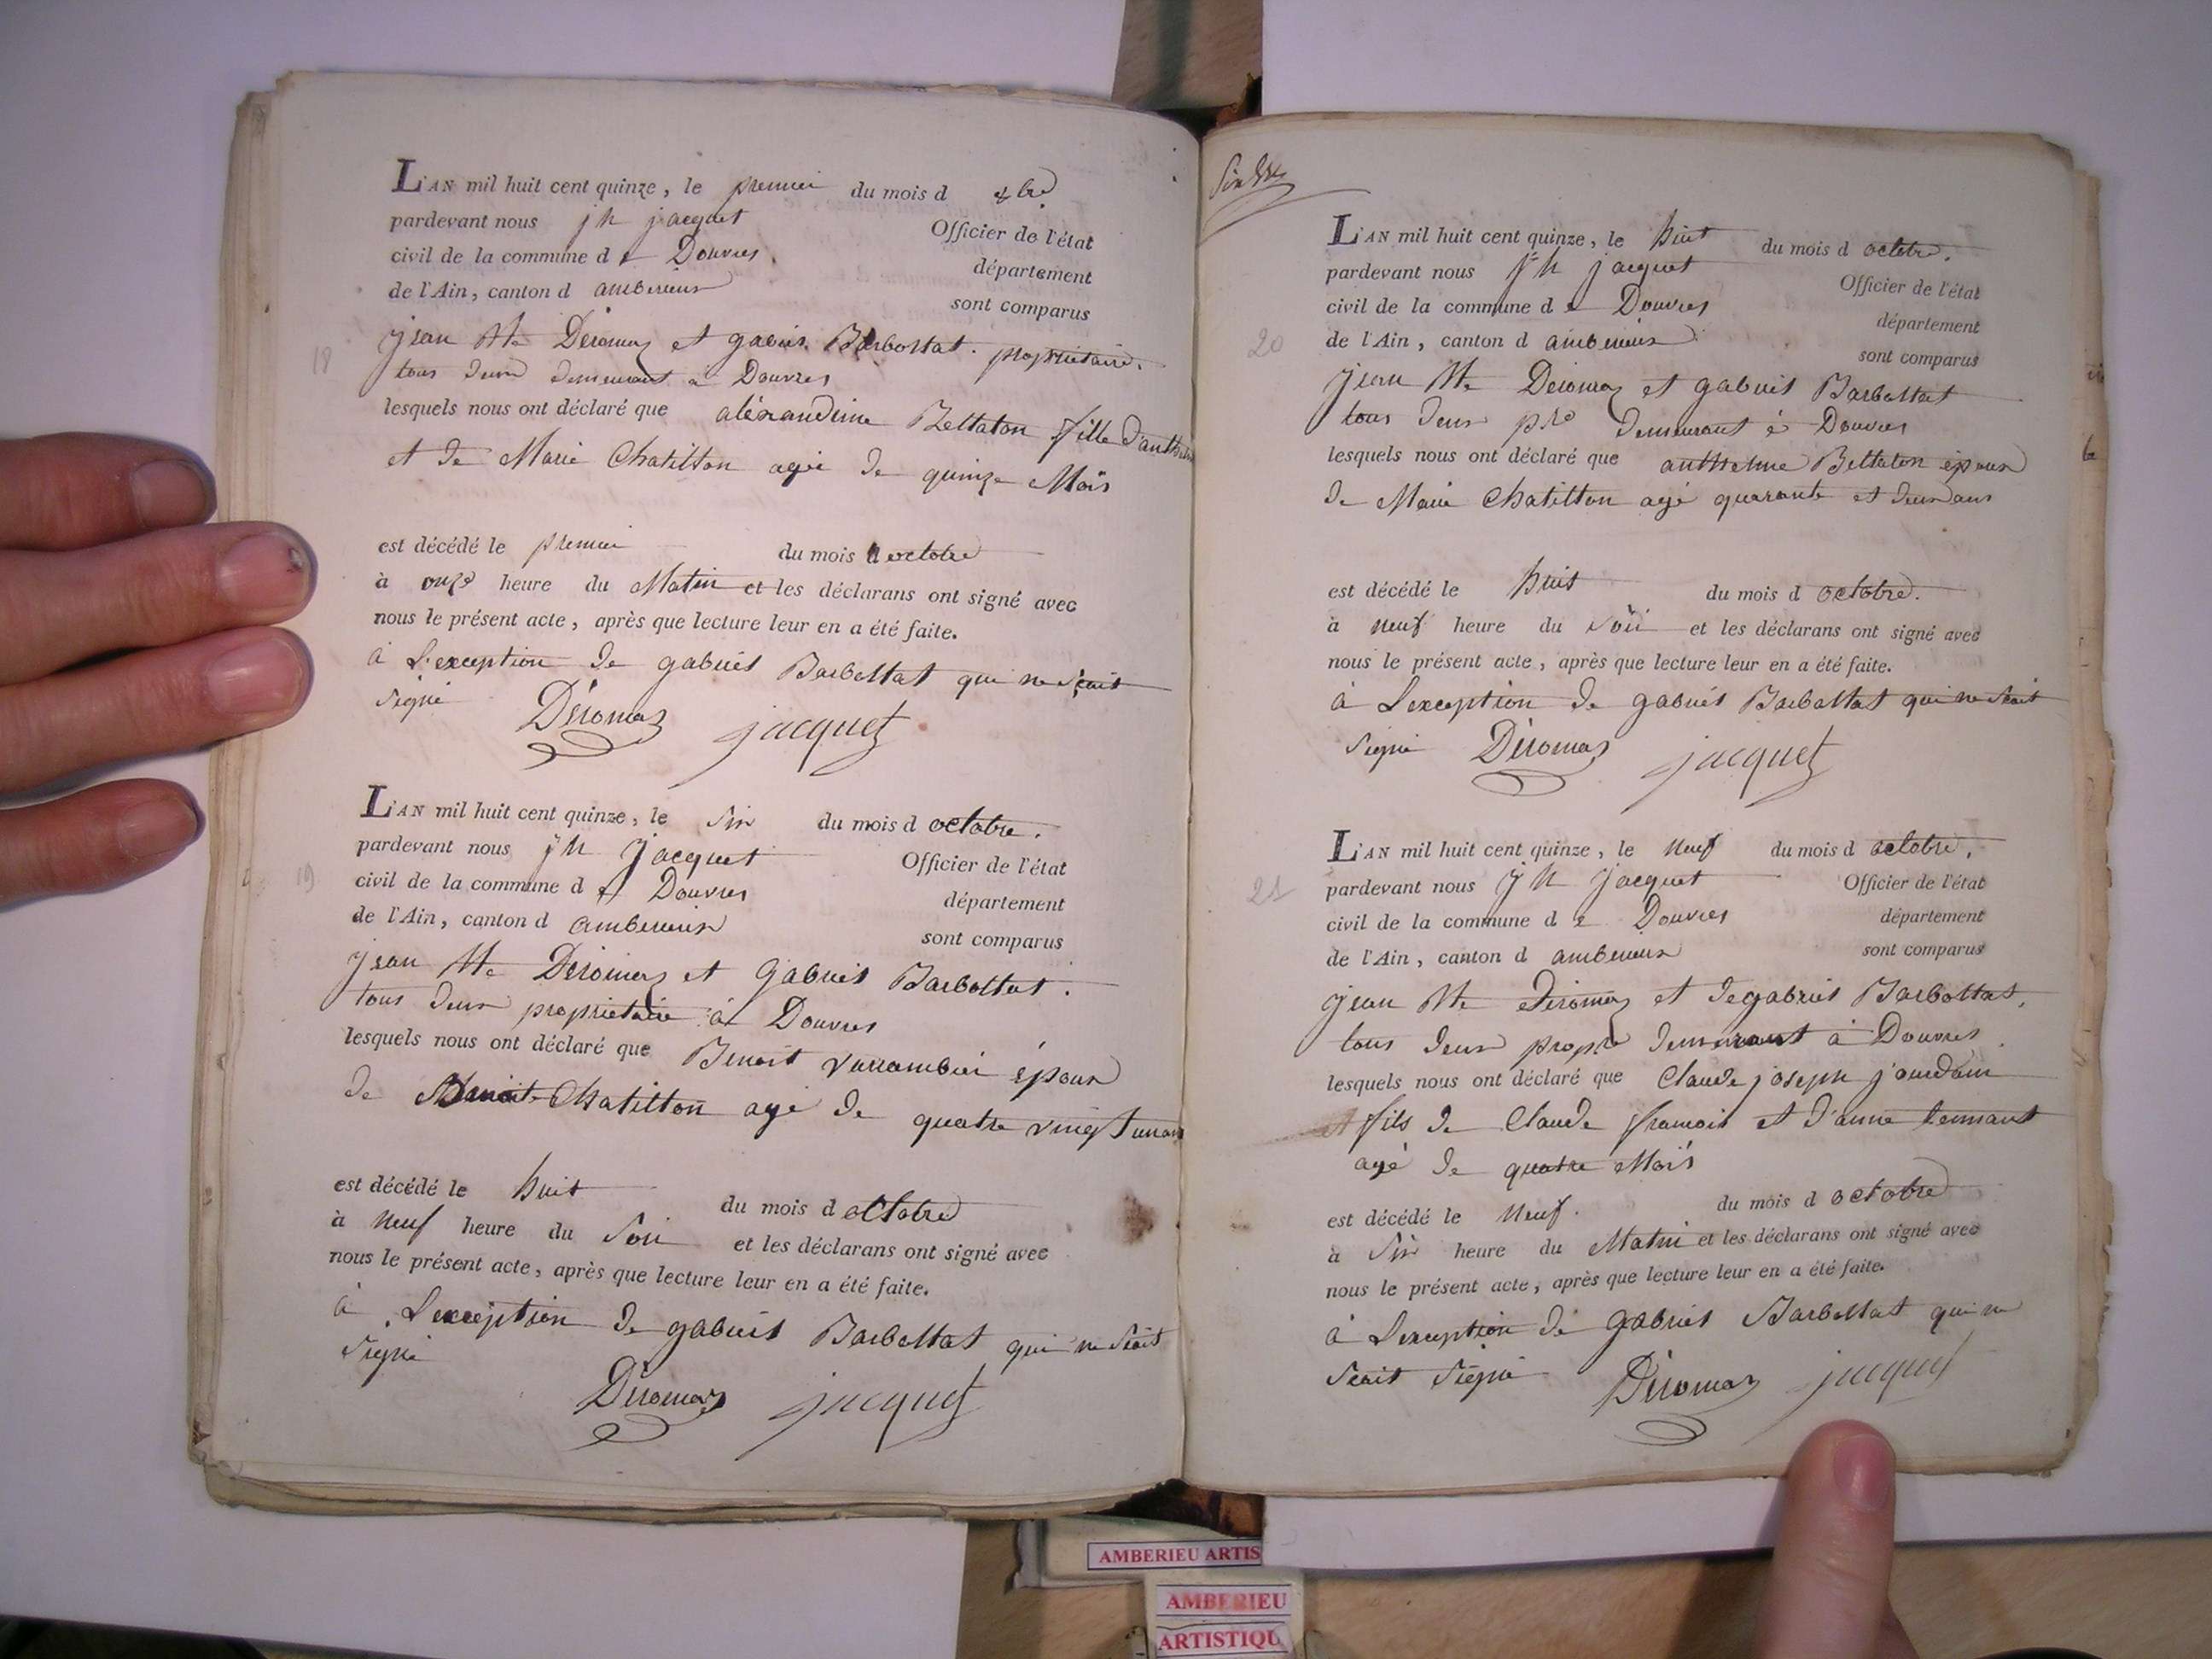 18
L'AN mil huit cent quinze, le premier du mois d 8bre
pardevant nous jh jacquet Officier de l'état
civil de la commune d e Douvres département
de l'Ain, canton d amberieux sont comparus
jean Me Deromas et gabriel Barbollat. propriétaire.
tous deux demeurant a Douvres
lesquels nous ont déclaré que aléxandrine Bellaton fille d'anthelme
et de Marie Chatillon agée de quinze Mois
est décédé le premier du mois d octobre
à onze heure du Matin et les déclarans ont signé avec
nous le présent acte, après que lecture leur en a été faite.
à L'exception de gabriel Barbollat qui ne scait
signé Déromas jacquet
19
L'AN mil huit cent quinze, le six du mois d octobre.
pardevant nous jh Jacquet Officier de l'état
civil de la commune d e Douvres département
de l'Ain, canton d amberieux sont comparus
jean Me Deromas et Gabriel Barbollat.
tous deux propriétaire à Douvres
lesquels nous ont déclaré que Benoit varrambier époux
de Chatillon agé de quatre vingt un ans
est décédé le huit du mois d octobre
à neuf heure du soir et les déclarans ont signé avec
nous le présent acte, après que lecture leur en a été faite.
à L'exception de gabriel Barbollat qui ne scait
signé
Déromas jacquet
20
L'AN mil huit cent quinze, le huit du mois d octobre.
pardevant nous jh jacquet Officier de l'état
civil de la commune d e Douvres département
de l'Ain, canton d amberieux sont comparus
jean Me Deromas et gabriel Barbollat
tous deux pre demeurant à Douvres
lesquels nous ont déclaré que anthelme Bellaton époux
de Marie Chatillon agé quarante et deux ans
est décédé le huit du mois d octobre.
à neuf heure du soir et les déclarans ont signé avec
nous le présent acte, après que lecture leur en a été faite.
à L'exception de gabriel Barbollat qui ne scait
signé Déromas jacquet
21
L'AN mil huit cent quinze, le neuf du mois d octobre.
pardevant nous jh Jacquet Officier de l'état
civil de la commune d e Douvres département
de l'Ain, canton d amberieux sont comparus
jean Me Deromas et de gabriel Barbollat.
tous deux propre demeurant à Douvres
lesquels nous ont déclaré que Claude joseph jourdain
fils de Claude françois et d'anne
agé de quatre Mois
est décédé le neuf. du mois d octobre
à six heure du Matin et les déclarans ont signé avec
nous le présent acte, après que lecture leur en a été faite.
à L'exception de gabriel Barbollat qui ne
scait signé Déromas jacquet
AMBERIEU ARTIS
AMBERIEU
ARTISTIQU